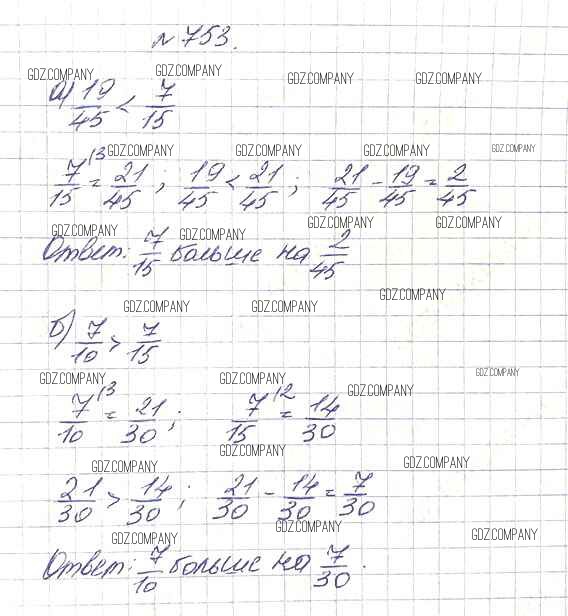 № 753.
GDZ.COMPANY GDZ.COMPANY GDZ.COMPANY GDZ.COMPANY
а) 19/45 < 7/15
GDZ.COMPANY GDZ.COMPANY GDZ.COMPANY GDZ.COMPANY
7/15 ⁽³ = 21/45 ; 19/45 < 21/45 ; 21/45 - 19/45 = 2/45
GDZ.COMPANY GDZ.COMPANY GDZ.COMPANY GDZ.COMPANY
Ответ: 7/15 больше на 2/45
GDZ.COMPANY GDZ.COMPANY GDZ.COMPANY
б) 7/10 > 7/15
GDZ.COMPANY GDZ.COMPANY GDZ.COMPANY GDZ.COMPANY
7/10 ⁽³ = 21/30 ; 7/15 ⁽² = 14/30
GDZ.COMPANY GDZ.COMPANY GDZ.COMPANY
21/30 > 14/30 ; 21/30 - 14/30 = 7/30
GDZ.COMPANY GDZ.COMPANY GDZ.COMPANY
Ответ: 7/10 больше на 7/30.